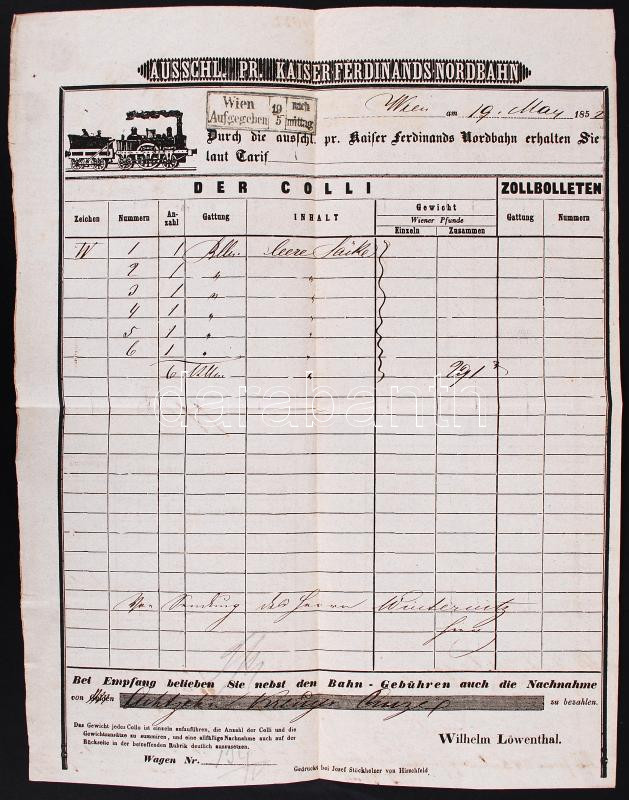 AUSSCHL. PR. KAISER FERDINANDS NORDBAHN
Wien Aufgegeben 19 5 nach mittag
Wien am 19. May 1852
Durch die ausschl. pr. Kaiser Ferdinands Nordbahn erhalten Sie
laut Tarif
DER COLLI ZOLLBOLLETEN
Zeichen Nummern An-zahl Gattung INHALT Gewicht Wiener Pfunde Einzeln Zusammen Gattung Nummern
W 1 1 leere Säcke
2 1 " "
3 1 " "
4 1 " "
5 1 " "
6 1 " "
6 "
darabanth
Sendung des Herrn Winternitz
Bei Empfang belieben Sie nebst den Bahn-Gebühren auch die Nachnahme
von zu bezahlen.
Das Gewicht jedes Collo ist einzeln aufzuführen, die Anzahl der Colli und die
Gewichtsansätze zu summiren, und eine allfällige Nachnahme auch auf der
Rückseite in der betreffenden Rubrik deutlich anzusetzen.
Wilhelm Löwenthal.
Wagen Nr.
Gedruckt bei Josef Stöckholzer von Hirschfeld.